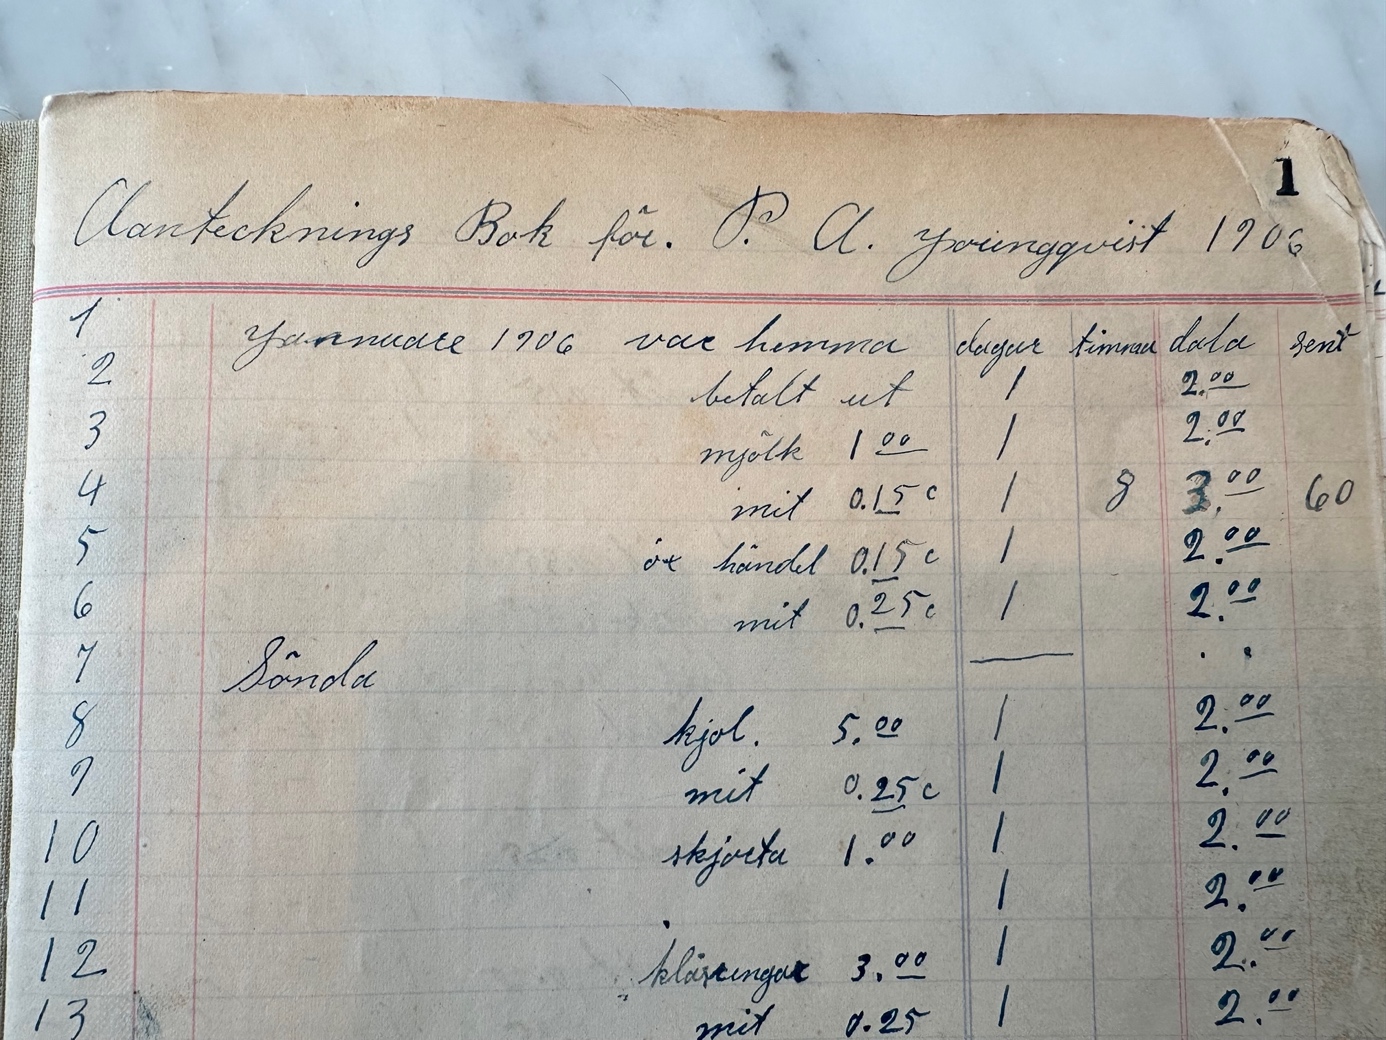 1
Aantecknings Bok för. P. A. Youngqvist 1906
1 Yannuare 1906 var hemma dagar timmar dala sent
2 betalt ut 1 2.00
3 mjölk 1 00 1 2.00
4 mit 0.15 c 1 8 3.00 60
5 öx händel 0.15 c 1 2.00
6 mit 0.25 c 1 2.00
7 Sönda . .
8 kjol. 5.00 1 2.00
9 mit 0.25 c 1 2.00
10 skjorta 1.00 1 2.00
11 1 2.00
12 3.00 1 2.00
13 mit 0.25 1 2.00